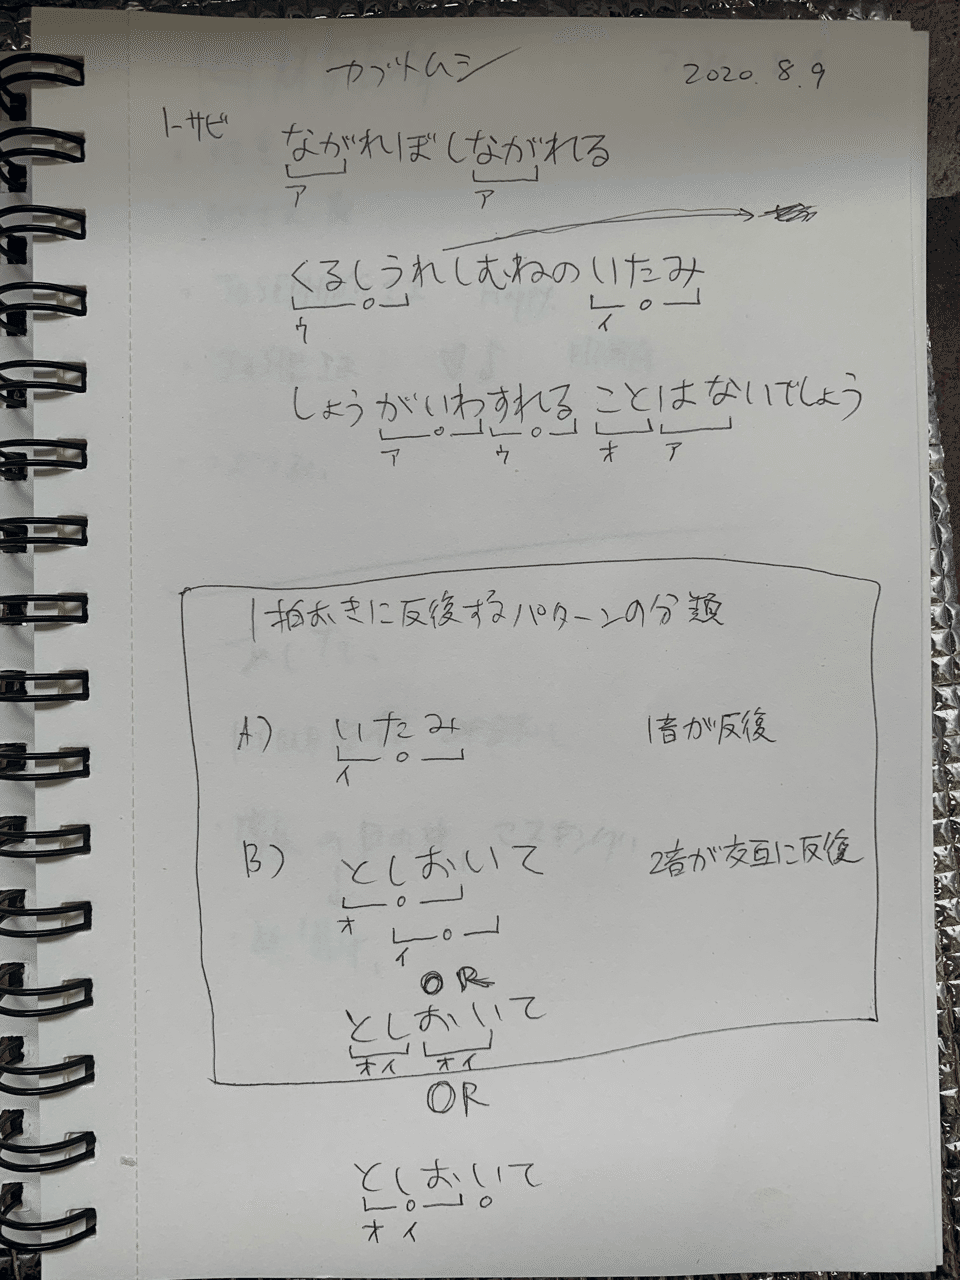 カブトムシ 2020.8.9
1-サビ ながれぼしながれる
ア ア
くるしうれしむねのいたみ
ウ イ
しょうがいわすれることはないでしょう
ア ウ オ ア
1拍おきに反復するパターンの分類
A) いたみ 1音が反復
イ
B) としおいて 2音が交互に反復
オ
イ
OR
としおいて
オイ オイ
OR
としおいて
オ イ